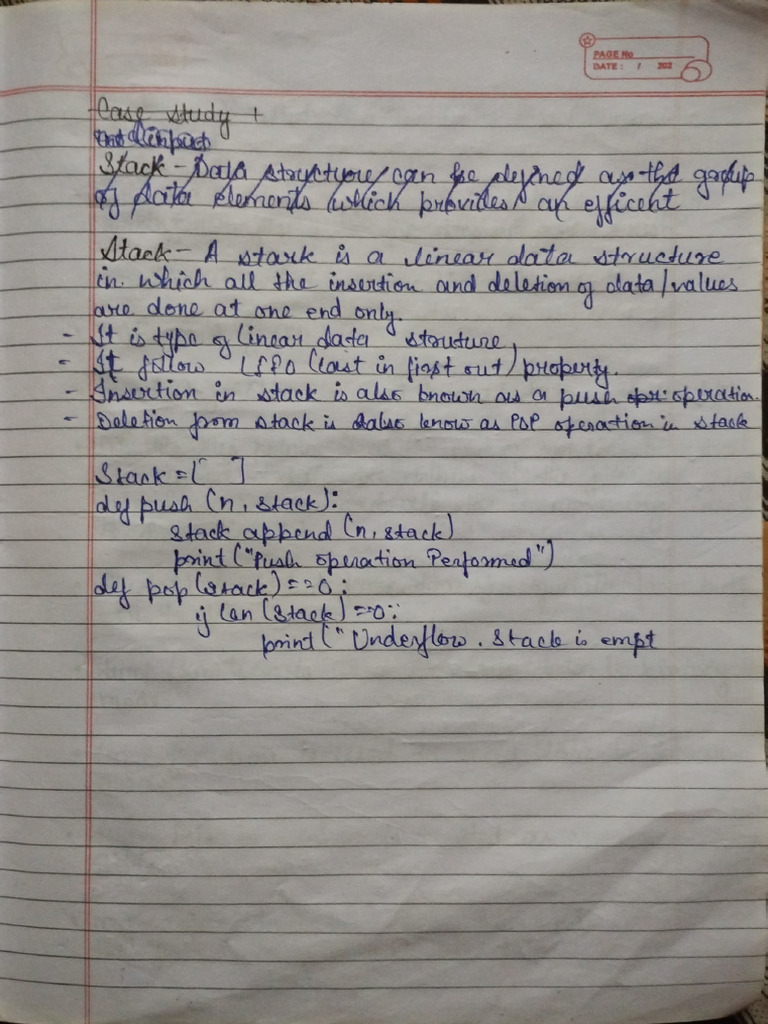 PAGE No
DATE: / 202
Case study +
Stack - Data structure can be defined as the group
of data elements which provides an efficent
Stack - A stark is a linear data structure
in. which all the insertion and deletion of data/values
are done at one end only.
- It is type of linear data struture,
- It follow LIFO (last in first out) property.
- Insertion in stack is also known as a push opr: operation.
- Deletion from stack is also know as POP operation in stack
Stack = [ ]
def push (n, stack):
stack append (n, stack)
print ("Push operation Performed")
def pop (stack) == 0:
if len (stack) == 0:
print ("Underflow. Stack is empt